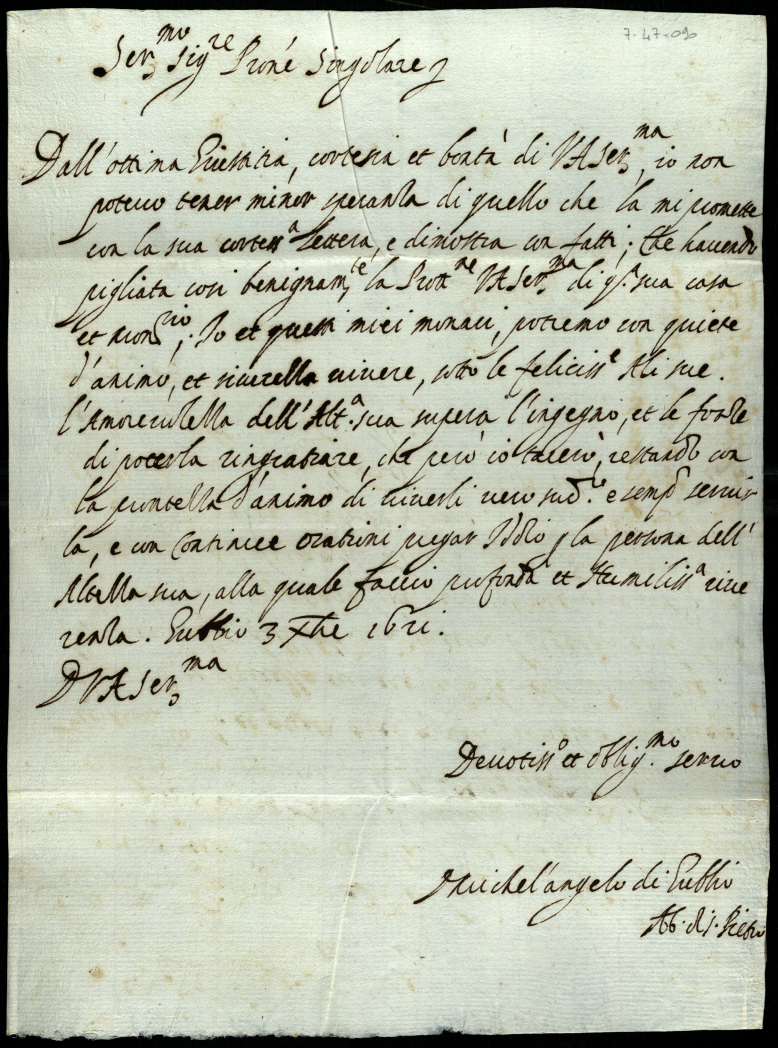 7-47-090
Ser.mo Sig.re Prone Singolare
Dall'ottima Giustitia, cortesia et bontà di VA Ser.ma, io non
potevo tener minor speranza di quello che la mi promette
con la sua cortess.a lettera, e dimostra con fatti; che havendo
pigliata così benignam.te la Prott.ne VA Ser.ma di q.sta sua casa
et mon.rio; Io et questi miei monaci, potremo con quiete
d'animo, et sicurezza vivere, sotto le feliciss.e Ali sue.
l'Amorevolezza dell'Alt.a sua supera l'ingegno, et le forze
di poterla ringratiare, che però io tacerò, restando con
la prontezza d'animo di viverli vero sud.to e semp. servir
la, e con continue orationi pregar Iddio p la persona dell'
Altezza sua, alla quale faccio profonda et Humiliss.a rive
renza. Eubbio 3 Xbre 1621.
D VA Ser.ma
Devotiss.o et oblig.mo servo
Michel'angelo di Eubbio
Ab. di S. Pietro